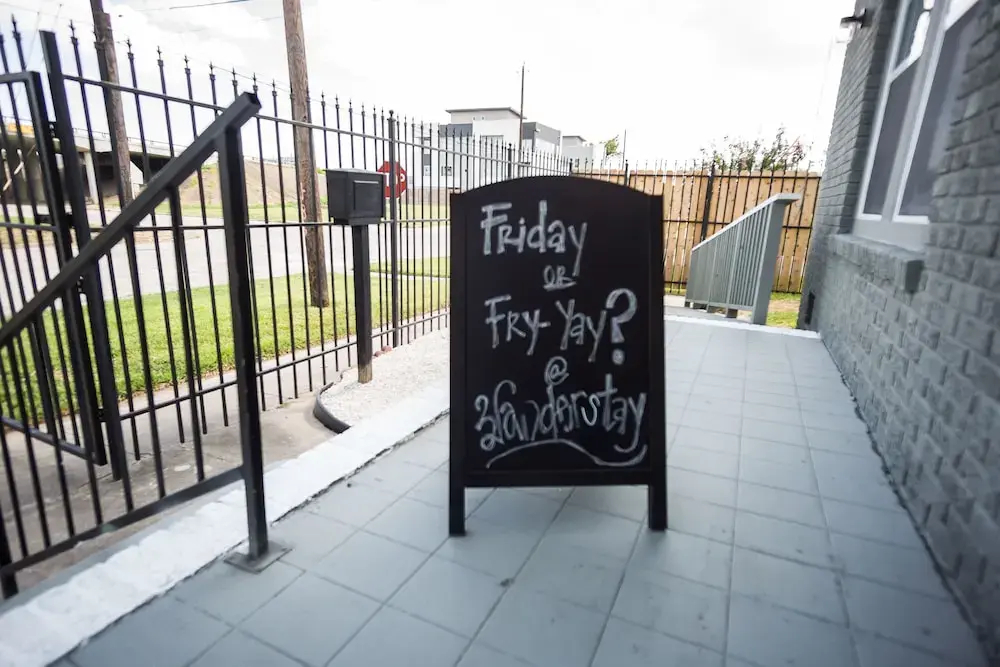 Friday
OR
Fry-Yay?
@
Wanderstay